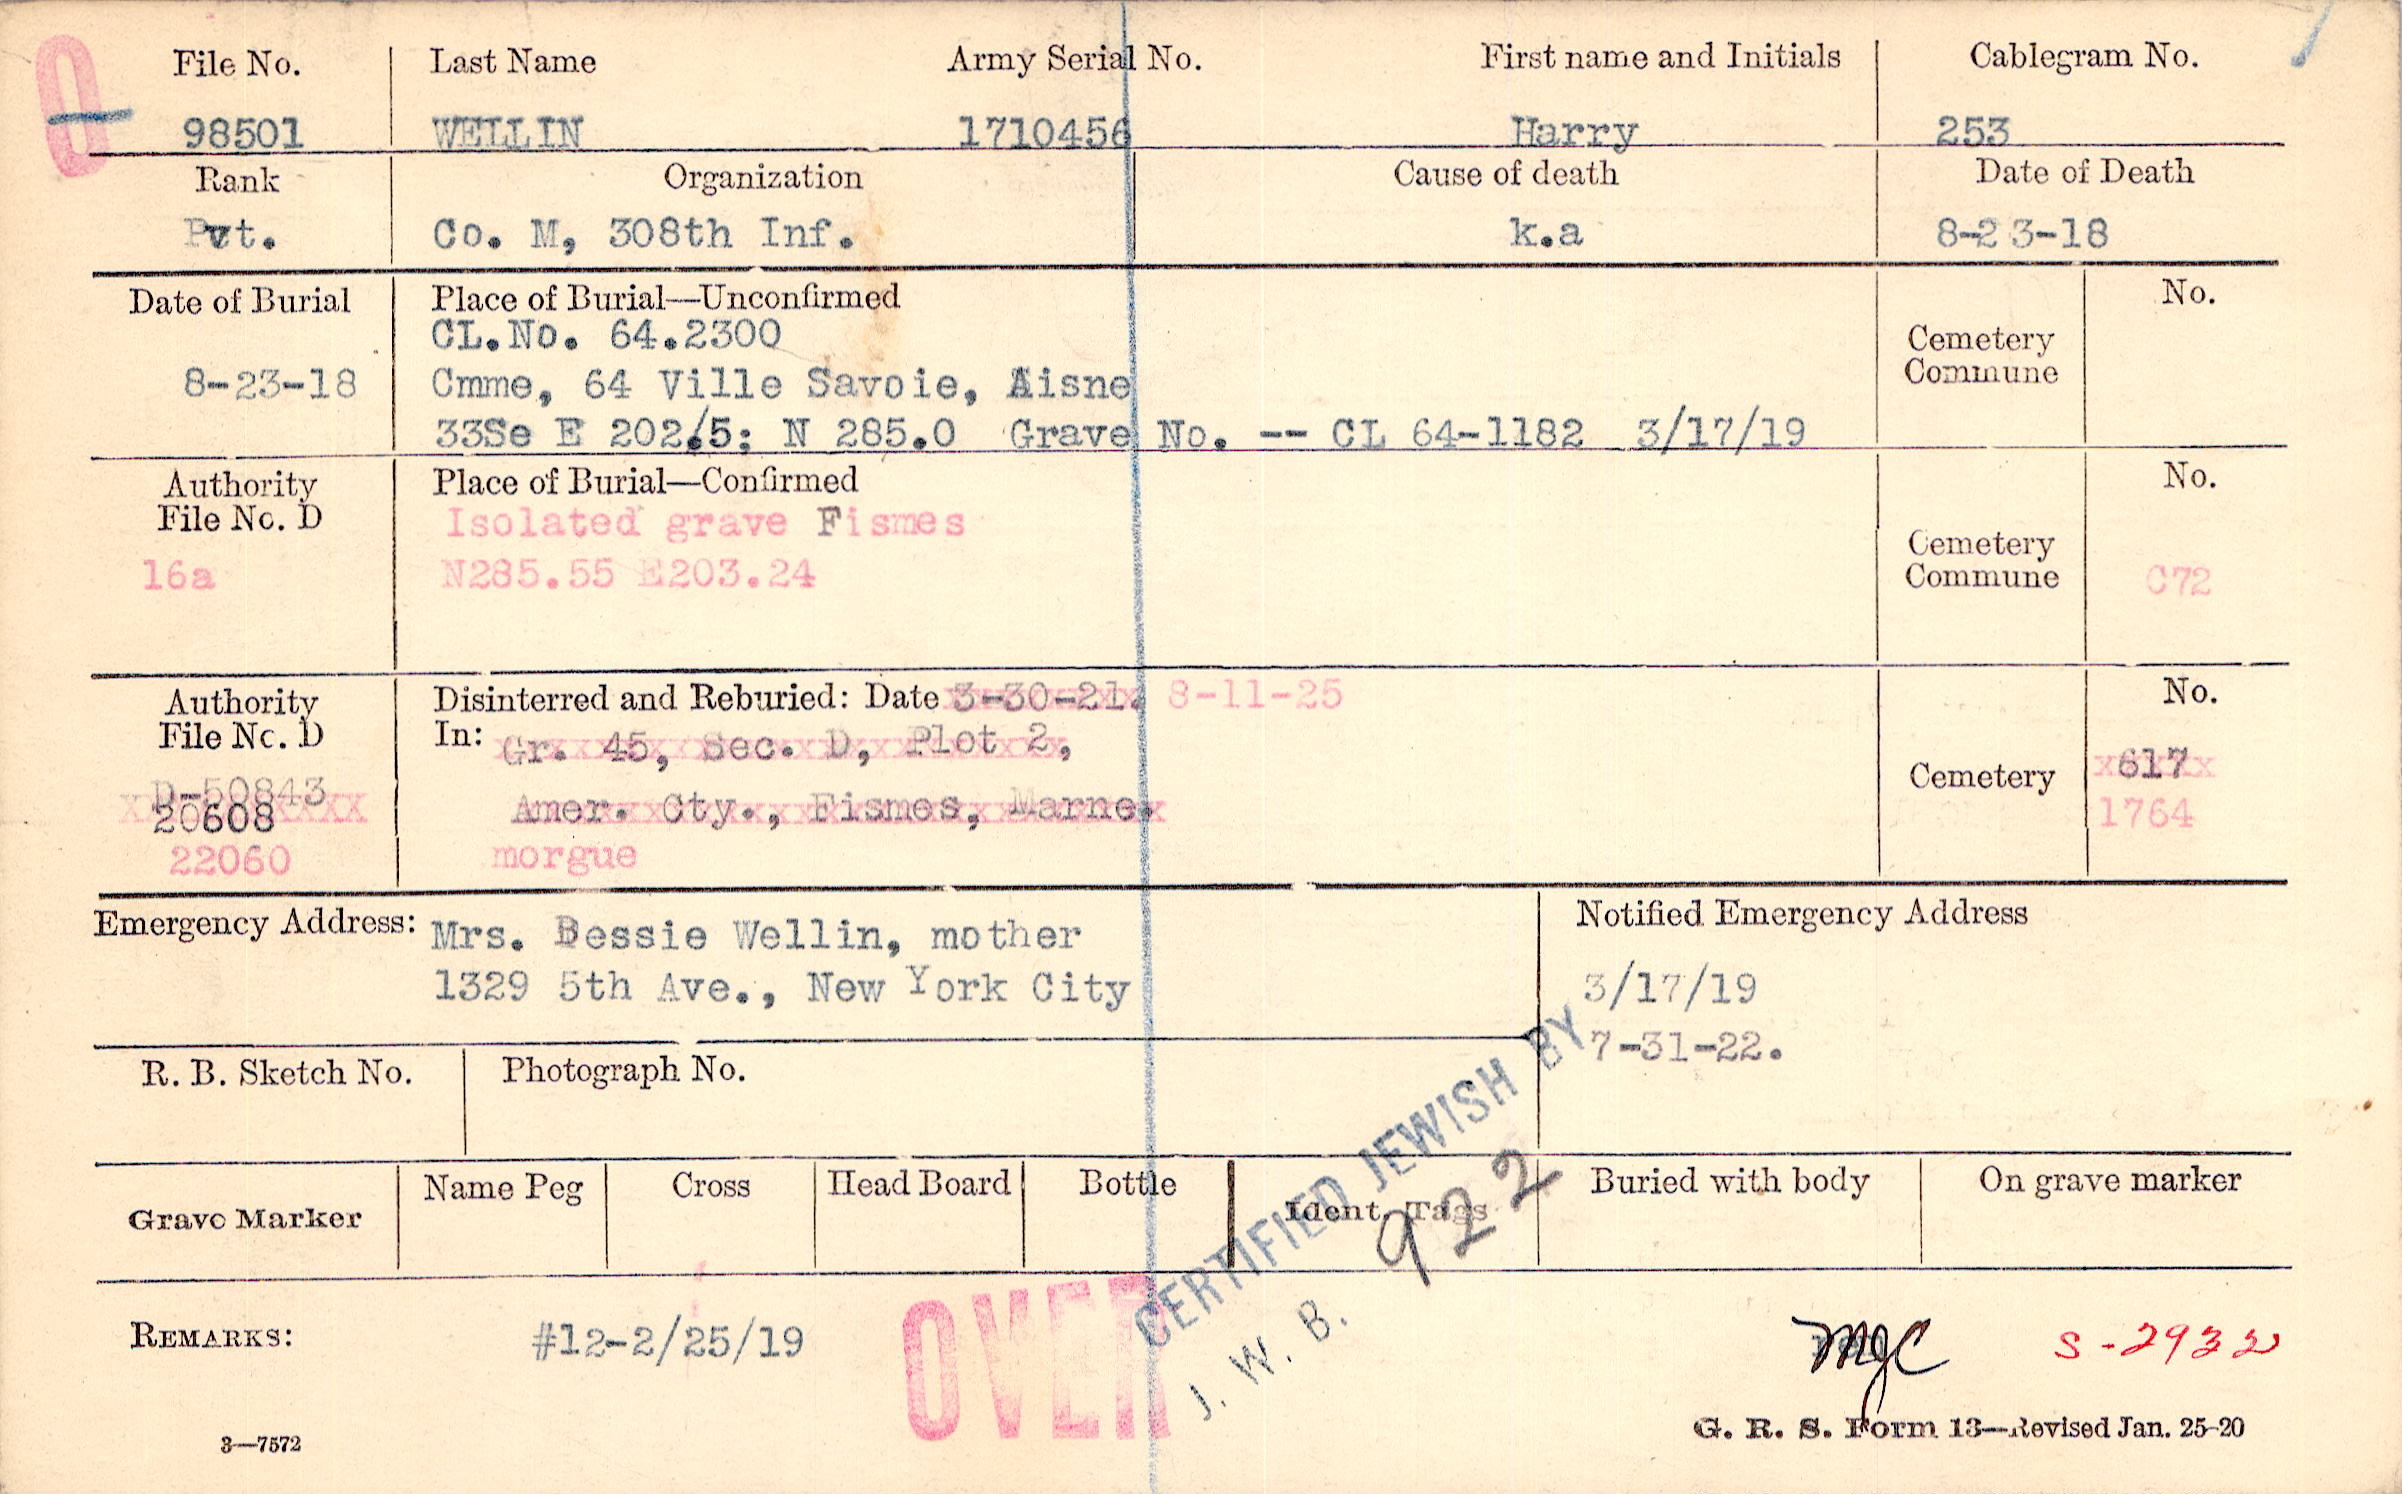 O
File No.
Last Name
Army Serial No.
First name and Initials
Cablegram No.
98501
WELLIN
1710456
Harry
253
Rank
Organization
Cause of death
Date of Death
Pvt.
Co. M, 308th Inf.
k.a
8-23-18
Date of Burial
Place of Burial—Unconfirmed
No.
CL.No. 64.2300
Cemetery
Commune
8-23-18
Cmme, 64 Ville Savoie, Aisne
33Se E 202.5; N 285.0 Grave No. -- CL 64-1182 3/17/19
Authority
File No. D
Place of Burial—Confirmed
No.
Isolated grave Fismes
Cemetery
Commune
16a
N285.55 E203.24
C72
Authority
File No. D
Disinterred and Reburied: Date 3-30-21. 8-11-25
No.
In: Gr. 45, Sec. D, Plot 2,
Cemetery
617
D-50843
20608
Amer. Cty., Fismes, Marne.
1764
22060
morgue
Emergency Address:
Mrs. Bessie Wellin, mother
1329 5th Ave., New York City
Notified Emergency Address
3/17/19
7-31-22.
R. B. Sketch No.
Photograph No.
Grave Marker
Name Peg
Cross
Head Board
Bottle
Ident. Tags
Buried with body
On grave marker
CERTIFIED JEWISH BY
J. W. B.
922
REMARKS:
#12-2/25/19
OVER
MGC
S-2932
3—7572
G. R. S. Form 13—Revised Jan. 25-20